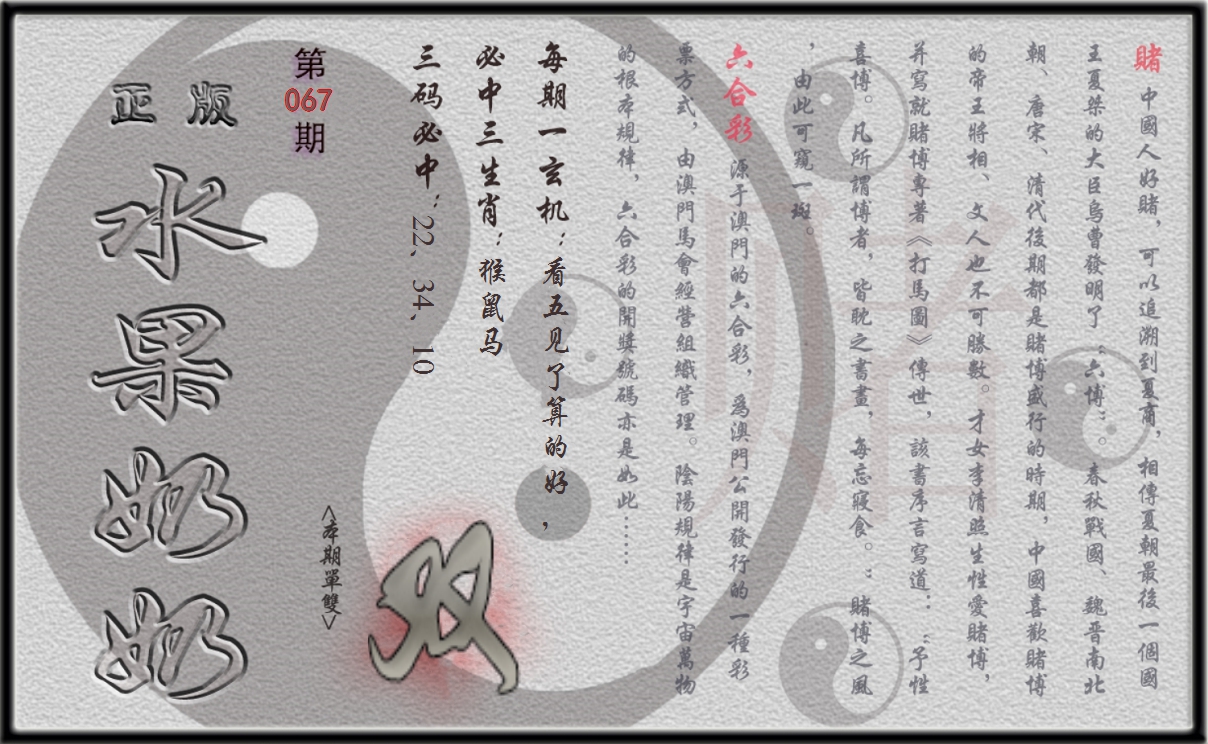 賭 中國人好賭，可以追溯到夏商，相傳夏朝最後一個國
王夏桀的大臣烏曹發明了“六博”。春秋戰國、魏晉南北
朝、唐宋、清代後期都是賭博盛行的時期，中國喜歡賭博
的帝王將相、文人也不可勝數。才女李清照生性愛賭博，
并寫就賭博專著《打馬圖》傳世，該書序言寫道：“予性
喜博。凡所謂博者，皆耽之書畫，每忘寢食。：賭博之風
，由此可窺一斑。
六合彩 源于澳門的六合彩，為澳門公開發行的一種彩
票方式，由澳門馬會經營組織管理。陰陽規律是宇宙萬物
的根本規律，六合彩的開獎號碼亦是如此……
每期一玄机：看五见了算的好，
必中三生肖：猴鼠马
三码必中：22，34，10
第
067
期
<本期單雙>
双
正版
水果奶奶
赌